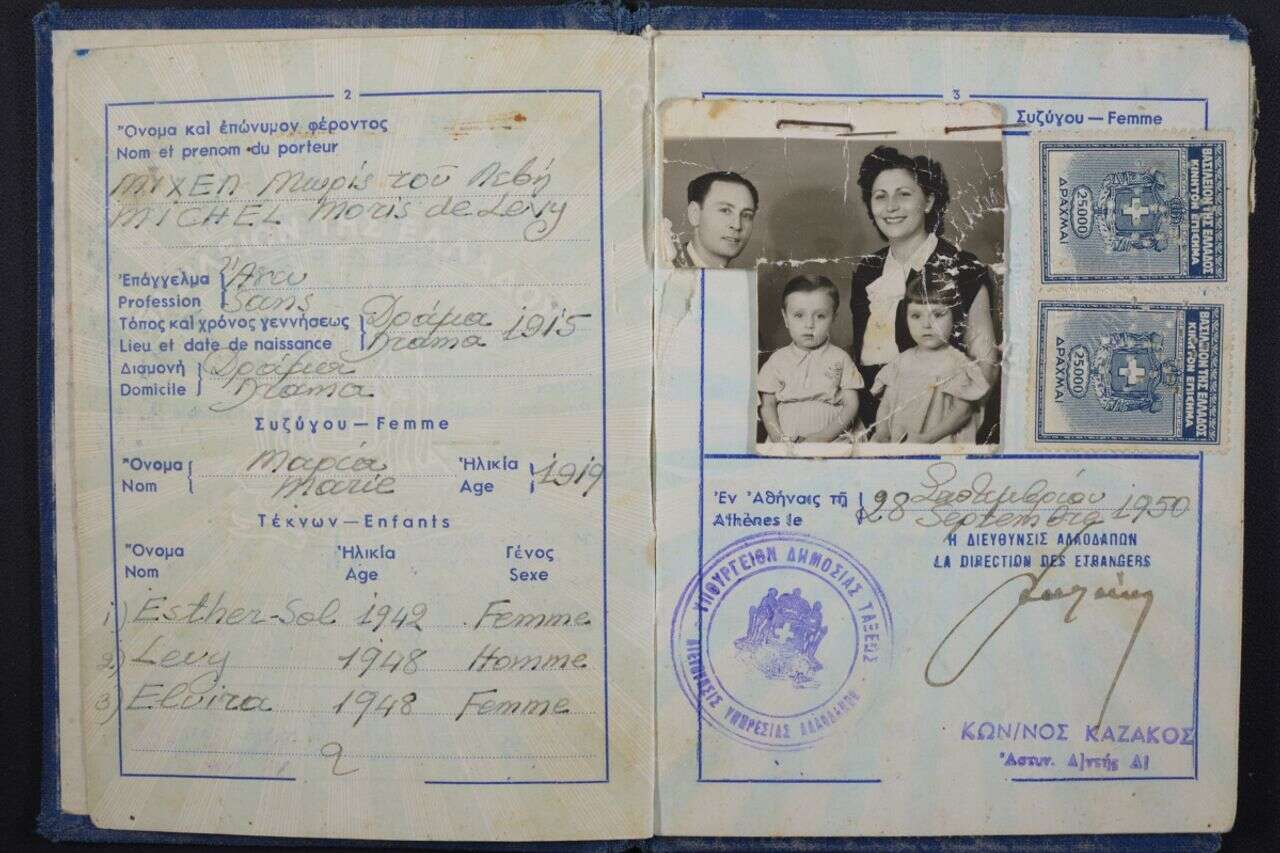 2
Ὄνομα καὶ ἐπώνυμον φέροντος
Nom et prenom du porteur
ΜΙΧΕΛ Μωρίς τοῦ Λεβή
MICHEL Moris de Levy
Ἐπάγγελμα Ἄνευ
Profession Sans
Τόπος καὶ χρόνος γεννήσεως Δράμα 1915
Lieu et date de naissance Drama
Διαμονὴ Δράμα
Domicile Drama
Συζύγου — Femme
Ὄνομα Μαρία Ἡλικία 1919
Nom Marie Age
Τέκνων — Enfants
Ὄνομα Ἡλικία Γένος
Nom Age Sexe
1) Esther-Sol 1942 Femme
2) Levy 1948 Homme
3) Elvira 1948 Femme
3
Συζύγου — Femme
ΒΑΣΙΛΕΙΟΝ ΤΗΣ ΕΛΛΑΔΟΣ
ΚΙΝΗΤΟΝ ΕΠΙΣΗΜΑ
25000
ΔΡΑΧΜΑΙ
ΒΑΣΙΛΕΙΟΝ ΤΗΣ ΕΛΛΑΔΟΣ
ΚΙΝΗΤΟΝ ΕΠΙΣΗΜΑ
25000
ΔΡΑΧΜΑΙ
Ἐν Ἀθήναις τῇ 28 Σεπτεμβρίου 1950
Athènes le Septembre
Η ΔΙΕΥΘΥΝΣΙΣ ΑΛΛΟΔΑΠΩΝ
LA DIRECTION DES ETRANGERS
ΥΠΟΥΡΓΕΙΟΝ ΔΗΜΟΣΙΑΣ ΤΑΞΕΩΣ
ΔΙΕΥΘΥΝΣΙΣ ΥΠΗΡΕΣΙΑΣ ΑΛΛΟΔΑΠΩΝ
ΚΩΝ/ΝΟΣ ΚΑΖΑΚΟΣ
Ἀστυν. Δ)ντής Α΄